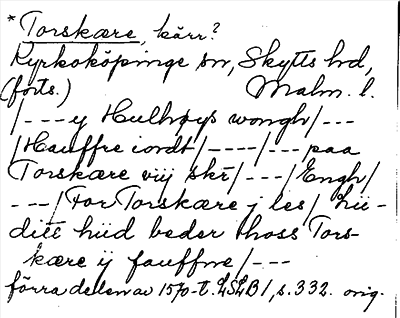 *Torskære, kärr?
Kyrkoköpinge sn, Skytts hd,
(forts.) Malm. l.
/---y Hulhøys wongh/---
/Hauffre iordt/----/---paa
Torskære vij skr/---/Engh/
---/For Torskære j les/
ditt hiid beder hoss Tors-
kære ij fauffne/---
förra delen av 1570-t. LSLB 1, s. 332. orig.